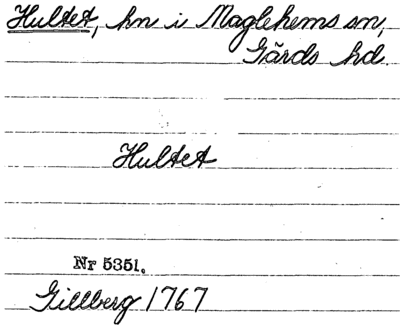 Hultet, hn i Maglehems sn,
Gärds hd.
Hultet
Nr 5351.
Gillberg 1767